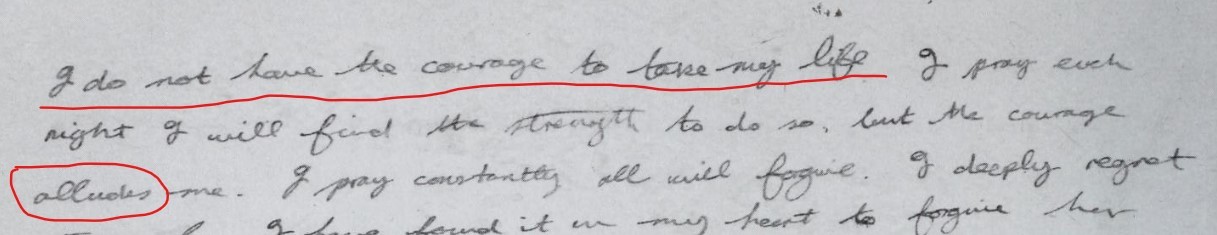 I do not have the courage to take my life I pray each
night I will find the strength to do so, but the courage
alludes me. I pray constantly all will forgive. I deeply regret
I have found it in my heart to forgive her